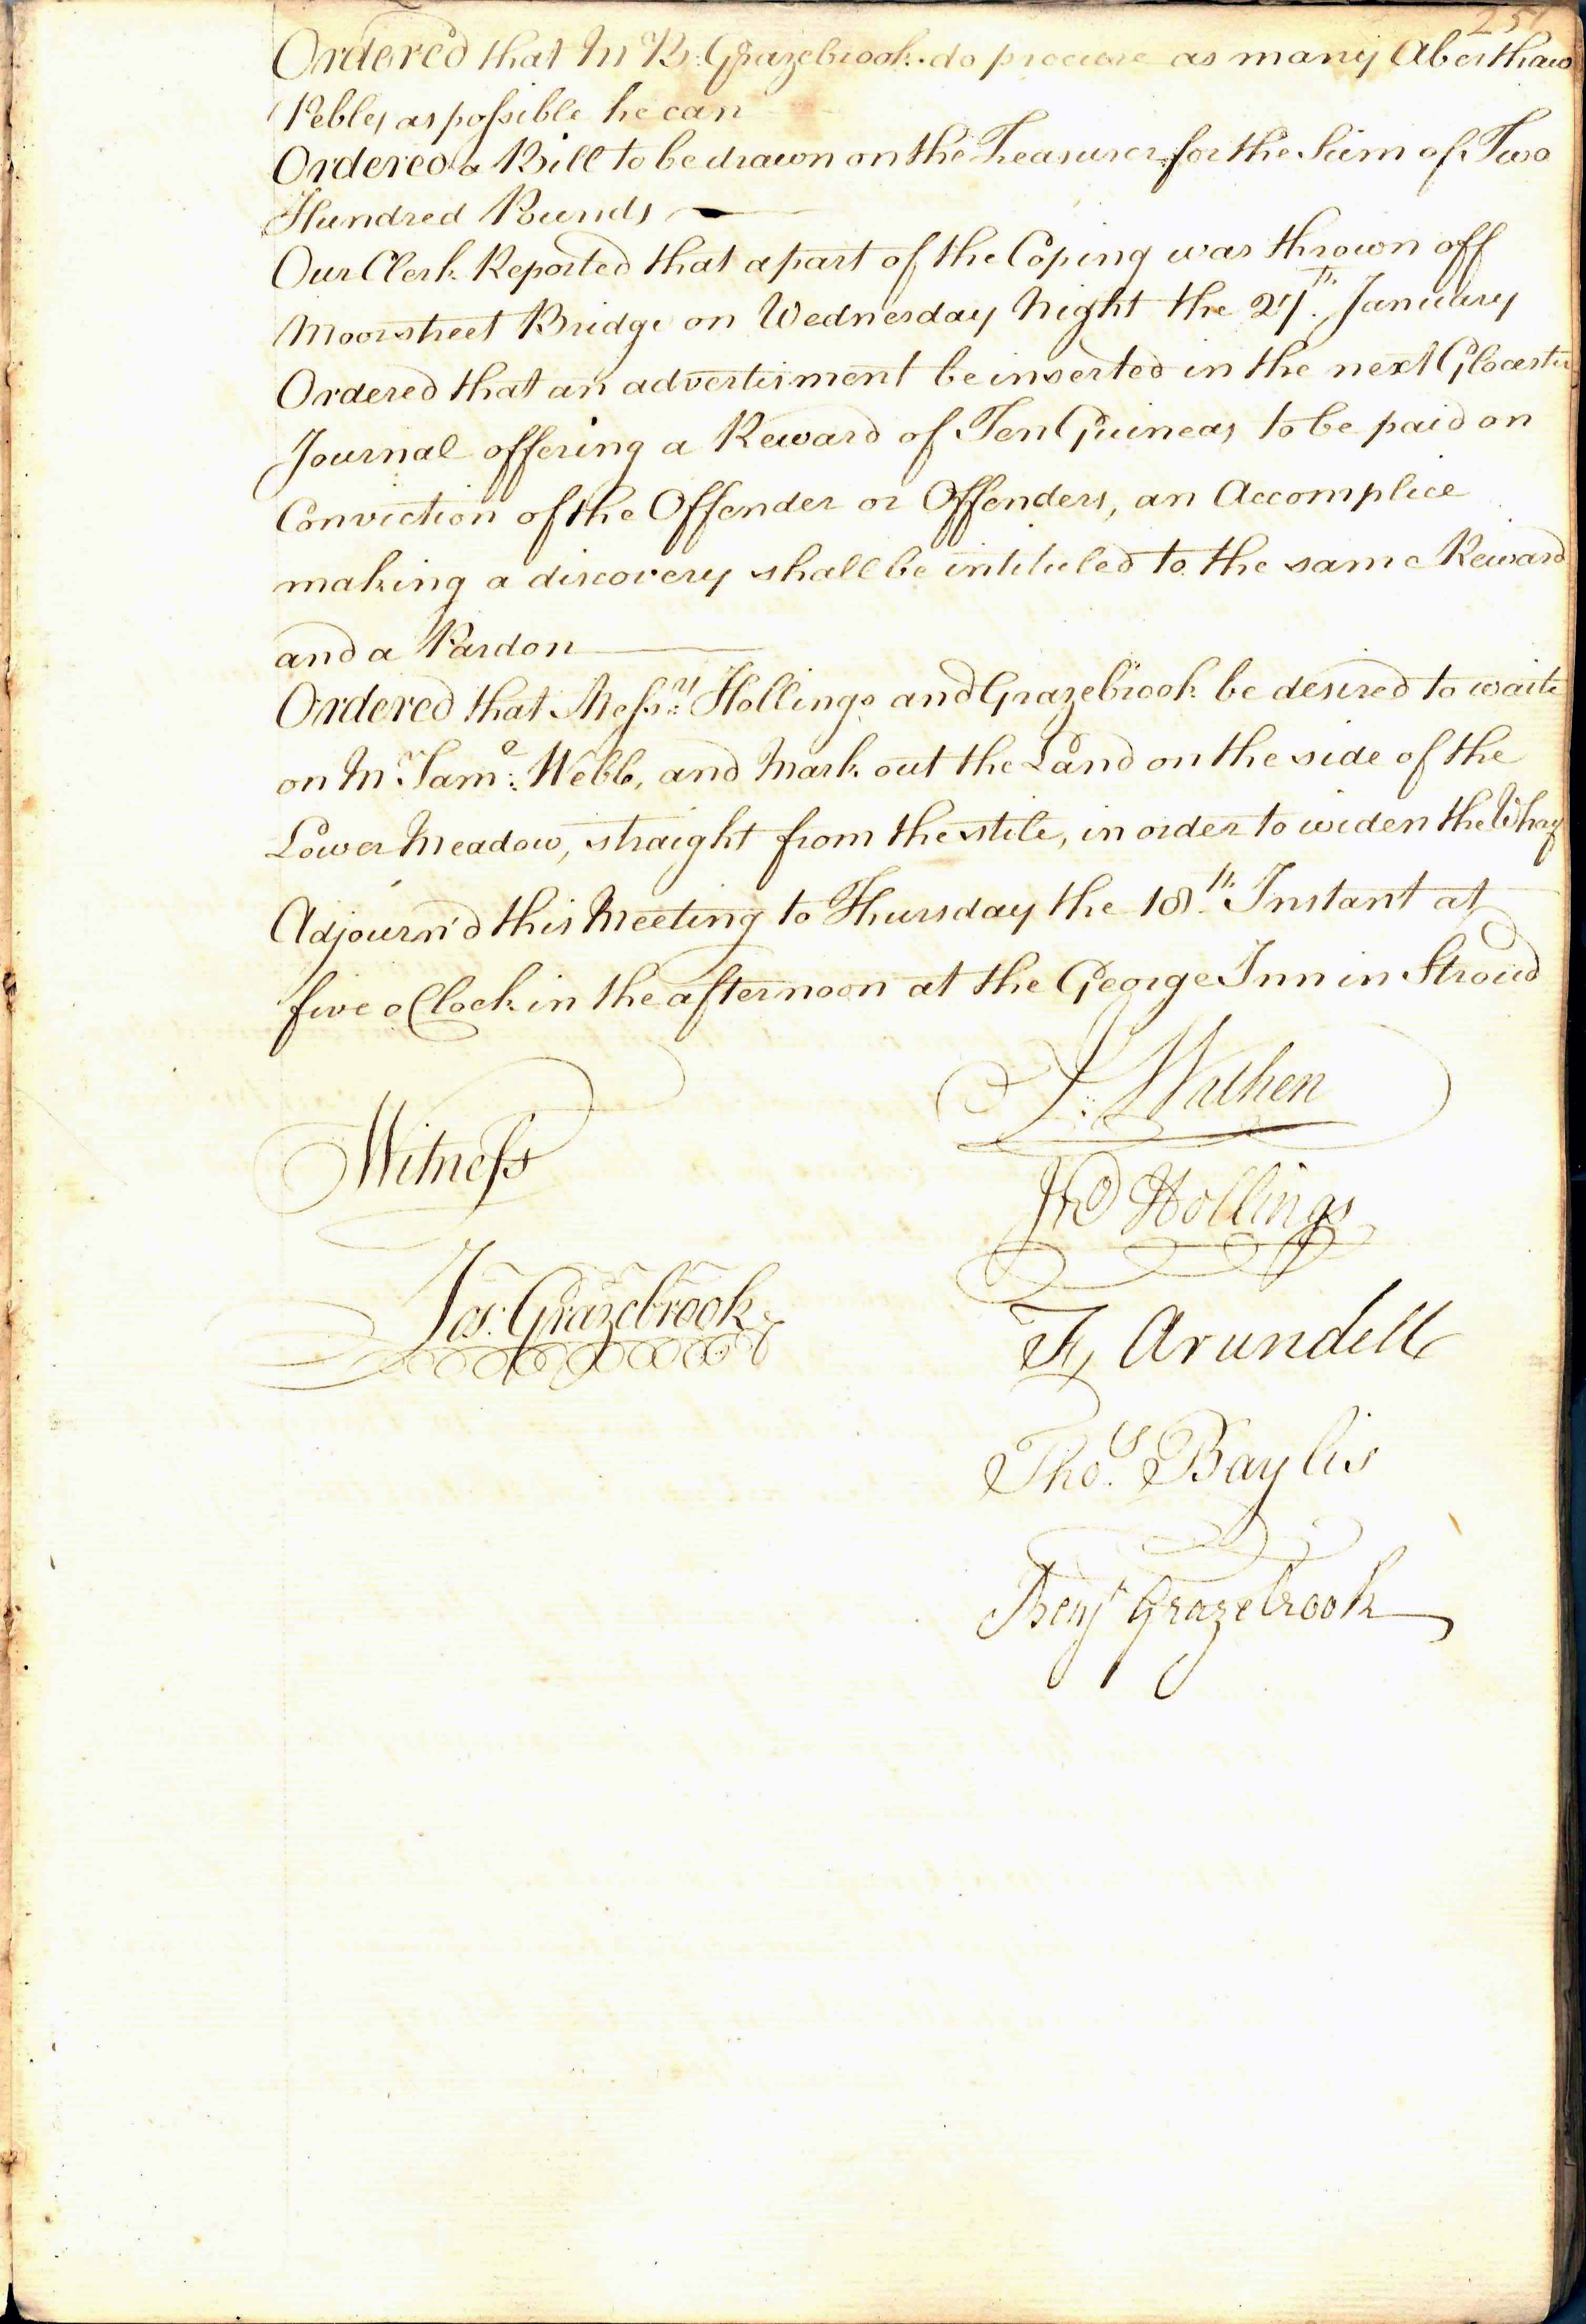 251
Ordered that Mr B: Grazebrook do procure as many Aberthaw
Pebles as possible he can
Ordered a Bill to be drawn on the Treasurer for the Sum of Two
Hundred Pounds
Our Clerk Reported that a part of the Coping was thrown off
Moorstreet Bridge on Wednesday Night the 27th. January
Ordered that an advertisment be inserted in the next Glocester
Journal offering a Reward of Ten Guineas to be paid on
Conviction of the Offender or Offenders, an Accomplice
making a discovery shall be intituled to the same Reward
and a Pardon
Ordered that Messrs: Hollings and Grazebrook be desired to waite
on Mr. Saml: Webb, and Mark out the Land on the side of the
Lower Meadow, straight from the stile, in order to widen the Wharf
Adjourn'd this Meeting to Thursday the 18th. Instant at
five o Clock in the afternoon at the George Inn in Stroud
Wathen
Witness
Jno Hollings
Jos: Grazebrook
F, Arundell
Thos. Baylis
Benjn Grazebrook